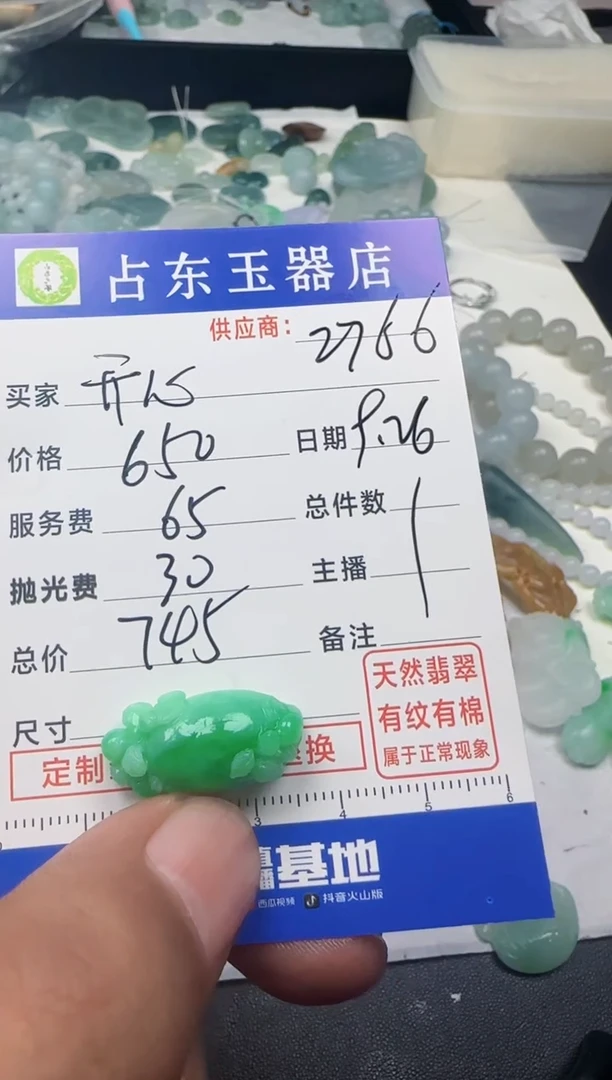 占东玉器店
供应商: 2766
买家 开心
价格 650 日期 9.26
服务费 65 总件数 1
抛光费 30 主播
总价 745 备注
尺寸
天然翡翠
有纹有棉
属于正常现象
定制 换
3 4 5 6
播基地
西瓜视频 抖音火山版